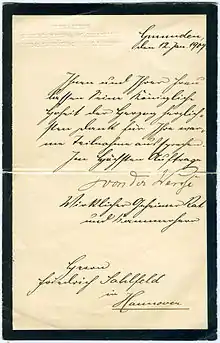 Gmunden,
den 12. Jan. 1907
Ihnen und Ihrer Frau
lassen Seine Königliche
Hoheit der Herzog herzlich-
sten Dank für Ihre war-
me Teilnahme aussprechen.
Im Höchsten Auftrage
von der Wense
Wirklicher Geheimer Rat
und Kammerherr
Herrn
Friedrich Sahlfeld
in
Hannover